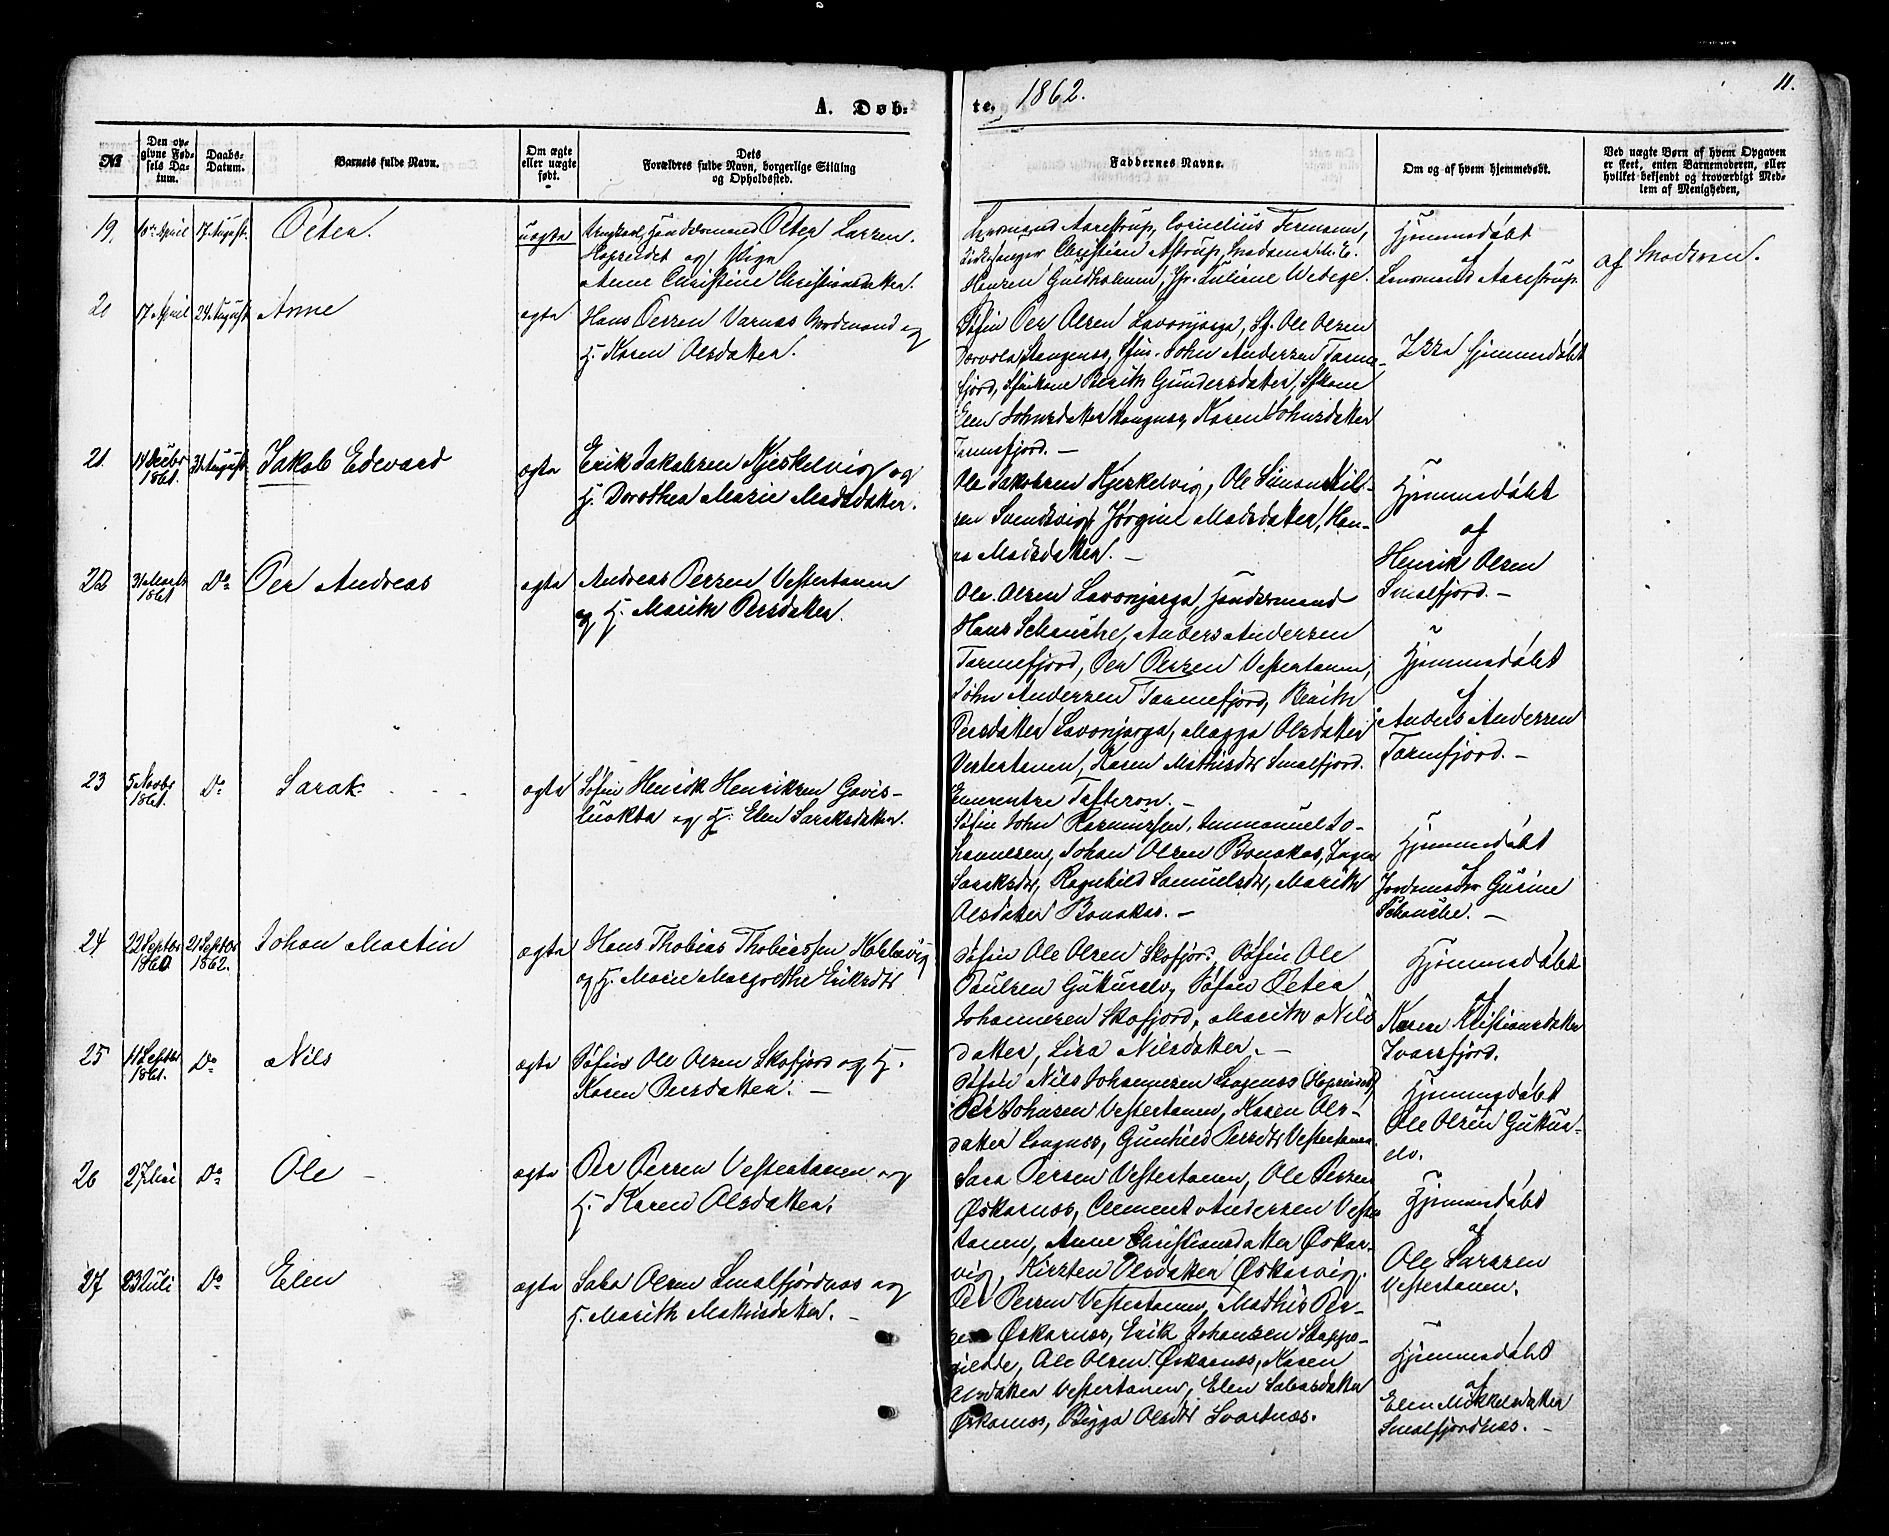 A. Døb-
te, 1862.
11.
№
Den op-
givne Fød-
sels Da-
tum.
Daabs-
Datum.
Barnets fulde Navn.
Om ægte
eller uægte
født.
Dets
Forældres fulde Navn, borgerlige Stilling
og Opholdssted.
Faddernes Navne.
Om og af hvem hjemmedøbt.
Ved uægte Børn af hvem Opgaven
er skeet, enten Barnemoderen, eller
hvilket bekjendt og troværdigt Med-
lem af Menigheden,
19.
10 April
17 August.
Peter.
uægte
Handelsmand Peter Larsen.
Hopseidet og Pige
Anne Christine Christiansdatter.
Lensmand Aarestrup, Cornelius
Christian Astrup, Madame M. E.
Hansen Guldholmen, Jfr. Juliane Wedege.
Hjemmedøbt
af
Lensmand Aarestrup.
af Moderen.
20
17 April
24 August
Anne
ægte
Hans Persen Varnæs Nordmand og
H. Karen Olsdatter.
Søfin Per Olsen Lavonjarga, Sf. Ole Olsen
Langenss, Sfin. John Andersen Tarme-
fjord, Berith Gundersdatter, Sfkone
Elen Johnsdatter Langnes, Karen Johnsdatter
Tarmefjord. —
Ikke hjemmedøbt
21.
14 Decbr
1861.
31 August.
Jakob Edevard
ægte
Erik Jakobsen Kjerkelvig og
H. Dorothea Marie Madsdatter.
Ole Jakobsen Kjerkelvig, Ole Simon Nil-
sen Svendsvig, Jørgine Madsdatter, Han-
na Madsdatter. —
Hjemmedøbt
af
Henrik Olsen
Smalfjord. —
22
31 Marts
1861
Do
Per Andreas
ægte
Andreas Persen Vestertanen
og H. Marith Persdatter.
Ole Olsen Lavonjarga, Handelsmand
Hans Schanche, Anders Andersen
Tarmefjord, Per Persen Vestertanen,
John Andersen Tarmefjord, Berith
Persdatter Lavonjarga, Magga Olsdatter
Vestertanen, Karen Mathisdtr Smalfjord.
Hjemmedøbt
af
Anders Andersen
Tarmefjord. —
23
5 Novbr
1861.
Do
Sarak
ægte
Søfin Henrik Henriksen Gavis-
luokta og H. Elen Saraksdatter.
Søfin John Rasmussen, Immanuel Jo-
hannesen, Johan Olsen Bonakas, Inga
Saraksdtr, Ragnhild Samuelsdtr, Marith
Olsdatter Bonakas. —
Hjemmedøbt
af
Jordemoder Gurine
Schanche. —
24
22 Septbr
1861
21 Septbr
1862.
Johan Martin
ægte
Hans Thobias Thobiassen Kaldevig
og H. Marie Margrethe Eriksdtr
Søfin Ole Olsen Skofjord, Søfin Ole
Paulsen Gukuselv, Søfin Peter
Johannesen Skofjord, Marith Nils
datter, Lisa Nilsdatter. —
Hjemmedøbt
af
Karen Kristiansdatter
Ivarsfjord.
25
11 Septbr
1861.
Do
Nils
ægte
Søfin Ole Olsen Skofjord og H.
Karen Persdatter. —
Søfin Nils Johannesen Langenss (Hopseidet)
Per Johnsen Vestertanen, Karen Ols-
datter Langnes, Gunhild Persdtr Vestertanen.
Hjemmedøbt
Ole Olsen Gukus-
elv.
26
Do
Ole —
ægte
Per Persen Vestertanen og
H. Karen Olsdatter.
Sara Persen Vestertanen, Ole Persen
Øskarnæs, Clement Andersen Vester-
tanen, Anne Christiansdatter Øskar-
vig, Kirsten Olsdatter Øskarvig.
Hjemmedøbt
af
Ole Sarasen
Vestertanen.
27
23 Juli
Do
Elen
ægte
Saba Olsen Smalfjordnæs og
H. Marith Mathisdatter. —
Per Persen Vestertanen, Mathis Per-
sen Øskarnæs, Erik Johansen Stappo-
giedde, Ole Olsen Øskarnæs, Karen
Olsdatter Vestertanen, Elen Sabasdatter
Øskarnæs, Bigga Olsdtr Svartnæs.
Hjemmedøbt
af
Elen Mikkelsdatter
Smalfjordnæs. —